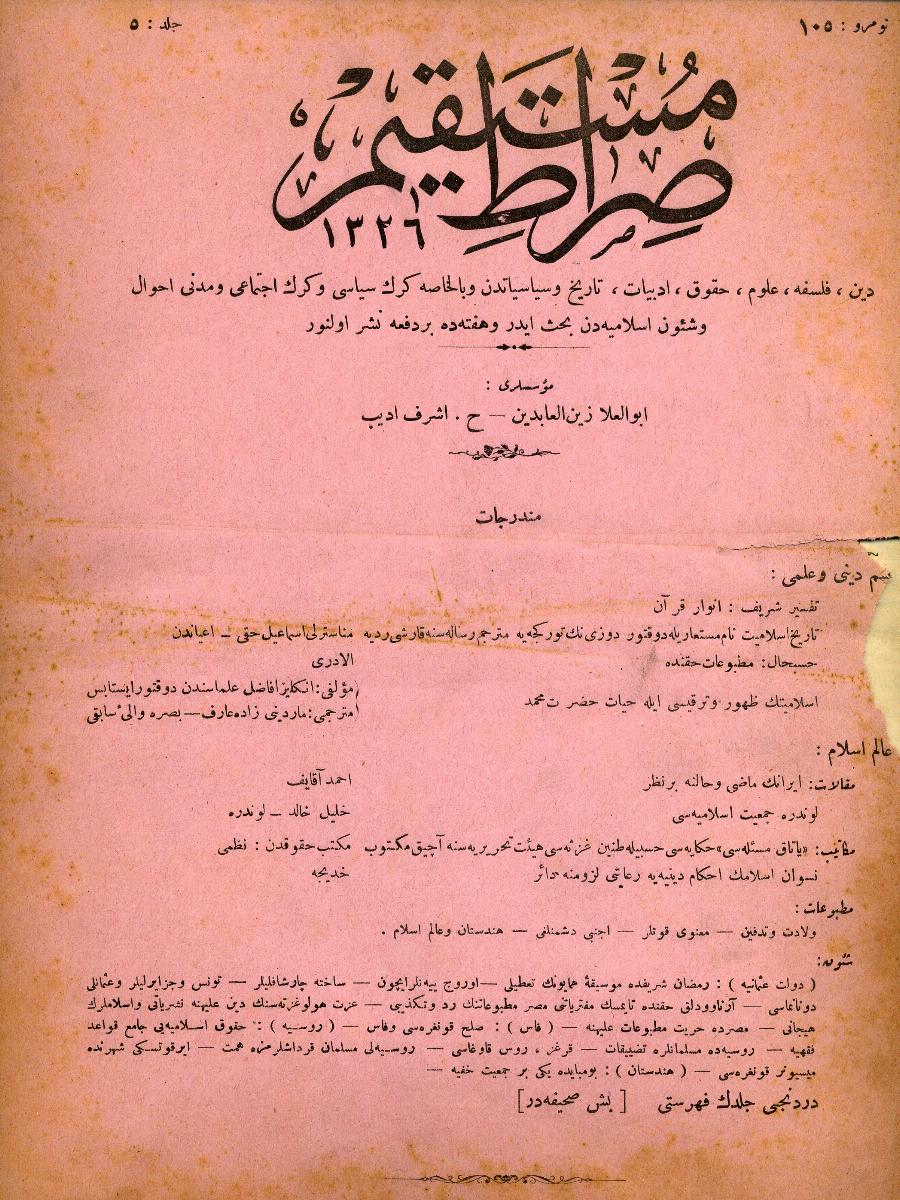 نومرو : ١٠٥
جلد : ٥
صراط مستقيم
١٣٢٦
دين ، فلسفه ، علوم ، حقوق ، ادبيات ، تاريخ وسياسياتدن وبالخاصه كرك سياسى وكرك اجتماعى ومدنى احوال
وشئون اسلاميه‌دن بحث ايدر وهفته‌ده بردفعه نشر اولنور
مؤسسلرى :
ابوالعلا زين‌العابدين — ح . اشرف اديب
مندرجات
قسم دينى وعلمى :
تفسير شريف : انوار قرآن
تاريخ اسلاميت نام‌مستعاريله دوقتور دوزى‌نك توركجه‌يه مترجم رساله‌سنه قارشى رديه مناسترلى اسماعيل حقى — اعياندن
حسبحال : مطبوعات حقنده الادرى
اسلاميتك ظهور وترقيسى ايله حيات حضرت محمد
مؤلفى : انكليز افاضل علماسندن دوقتور
مترجمى : ماردينى زاده عارف — بصره والئ سابقى
عالم اسلام :
مقالات : ايرانك ماضى وحالنه برنظر احمد آقايف
لوندره جمعيت اسلاميه‌سى خليل خالد — لوندره
مكاتيب : «ياتاق مسئله‌سى» حكايه‌سى حسبيله طنين غزته‌سى هيئت تحريريه‌سنه آچيق مكتوب مكتب حقوقدن : نظمى
نسوان اسلامك احكام دينيه‌يه رعايتى لزومنه دائر خديجه
مطبوعات :
ولادت وتدفين — معنوى قوتلر — اجنبى دشمنلغى — هندستان وعالم اسلام .
شئون :
( دولت عثمانيه ) : رمضان شريفده موسيقۀ همايونك تعطيلى — اوروج ييه‌نلر ايچون — ساخته چارشافليلر — تونس وجزايرليلر وعثمانلى
دونانماسى — آرناوودلق حقنده تايمسك مفترياتى مصر مطبوعاتنك رد وتكذيبى — عزت هولو غزته‌سنك دين عليهنه نشرياتى واسلاملرك
هيجانى — مصرده حريت مطبوعات عليهنه — ( فاس ) : صلح قونفره‌سى وفاس — ( روسيه ) : حقوق اسلاميه‌يى جامع قواعد
فقهيه — روسيه‌ده مسلمانلره تضييقات — قرغز ، روس قاوغاسى — روسيه‌لى مسلمان قرداشلرمزه همت — ايرقوتسكى شهرنده
ميسيونر قونفره‌سى — ( هندستان ) : بومبايده يكى بر جمعيت خفيه —
دردنجى جلدك فهرستى [ بش صحيفه‌در ]